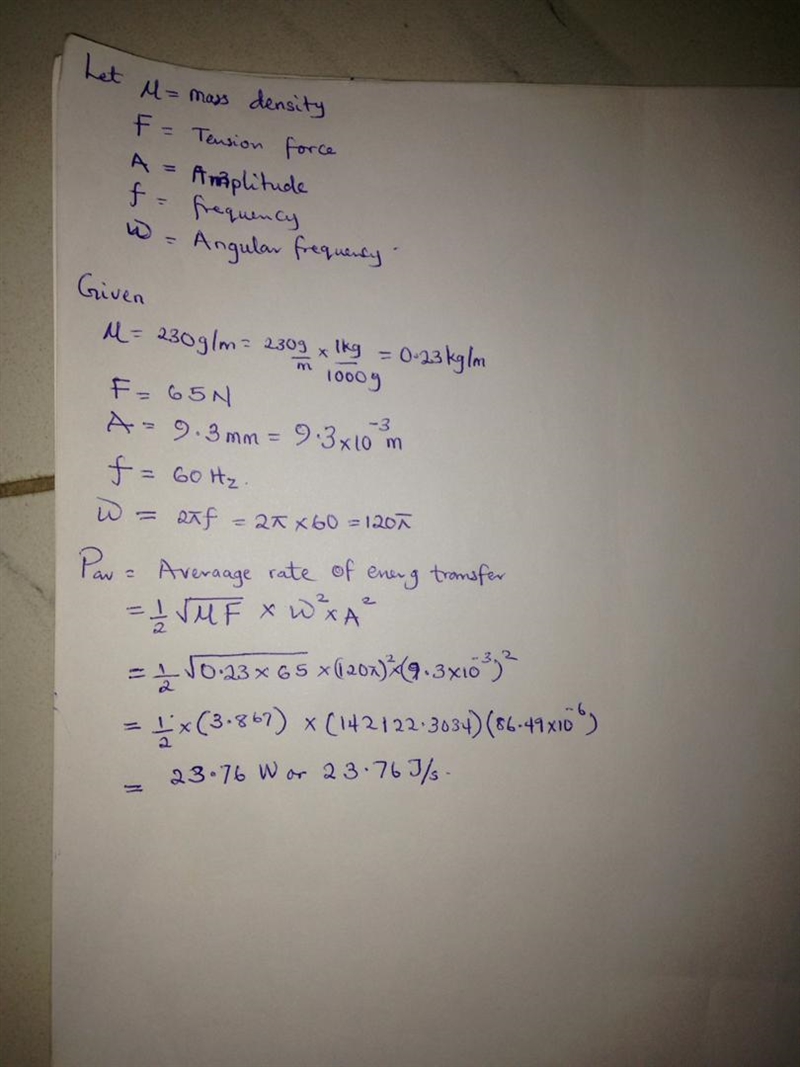 Let μ = mass density
F = Tension force
A = Amplitude
f = frequency
ω = Angular frequency.
Given
μ = 230g/m = 230g/m × 1kg/1000g = 0.23kg/m
F = 65N
A = 9.3mm = 9.3×10⁻³m
f = 60Hz.
ω = 2πf = 2π×60 = 120π
Pav = Averaage rate of energ transfer
= 1/2 √μF × ω² × A²
= 1/2 √0.23×65 × (120π)² × (9.3×10⁻³)²
= 1/2 × (3.867) × (142122.3034)(86.49×10⁻⁶)
= 23.76 W or 23.76 J/s.